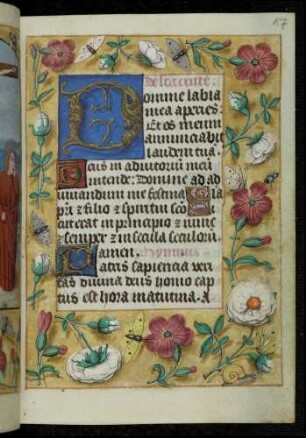 De sca cruce
Domine labia
mea aperies.
Et os meum
annunciabit
laudem tua.
Deus in adiutoriu meu
intende. Domine ad ad
iuuandum me festina
pri z filio z spiritui sco
Sicut erat in principio z nunc
z semper z in secula seculoru.
Amen. Hymnus
Patris sapiencia veri
tas diuina deus homo cap
tus est hora matutina. A